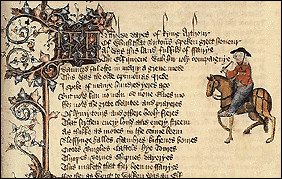 In tholde dayes of kyng Arthour
Of which that Britons speken greet honour
Al was this land fulfild of fairye
The Elf queene with hir ioly compaignye
Daunced ful ofte in many a grene mede
This was the olde opinion as I rede
I speke of manye hundred yeres ago
But now kan no man se none Elues mo
For now the grete charitee and prayeres
Of lymytours and othere hooly freres
That serchen euery lond and euery streem
As thikke as motes in the sonne beem
Blessynge halles chambres kichenes boures
Citees Burghes Castels hye toures
Thropes Bernes Shipnes Dayeryes
This maketh that ther been no fairyes
For ther as wont to walken was an Elf